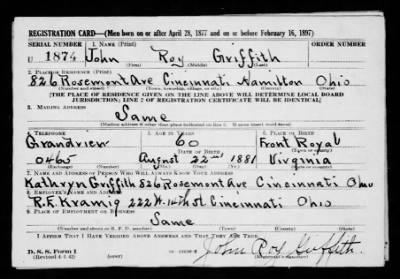 REGISTRATION CARD—(Men born on or after April 28, 1877 and on or before February 16, 1897)
SERIAL NUMBER 1. NAME (Print) ORDER NUMBER
U 1874 John Roy Griffith
(First) (Middle) (Last)
2. PLACE OF RESIDENCE (Print)
826 Rosemont Ave Cincinnati Hamilton Ohio
(Number and street) (Town, township, village, or city) (County) (State)
[THE PLACE OF RESIDENCE GIVEN ON THE LINE ABOVE WILL DETERMINE LOCAL BOARD
JURISDICTION; LINE 2 OF REGISTRATION CERTIFICATE WILL BE IDENTICAL]
3. MAILING ADDRESS
Same
[Mailing address if other than place indicated on line 2. If same insert word same]
4. TELEPHONE 5. AGE IN YEARS 6. PLACE OF BIRTH
Grandview 60 Front Royal
0465 August 22nd 1881 Virginia
(Exchange) (Number) (Mo.) (Day) (Yr.) (State or country)
7. NAME AND ADDRESS OF PERSON WHO WILL ALWAYS KNOW YOUR ADDRESS
Kathryn Griffith 826 Rosemont Ave Cincinnati Ohio
8. EMPLOYER'S NAME AND ADDRESS
R.F. Kramig 222 W. 14th St. Cincinnati Ohio
9. PLACE OF EMPLOYMENT OR BUSINESS
Same
(Number and street or R. F. D. number) (Town) (County) (State)
I AFFIRM THAT I HAVE VERIFIED ABOVE ANSWERS AND THAT THEY ARE TRUE.
D. S. S. Form 1
(Revised 4-1-42)
John Roy Griffith